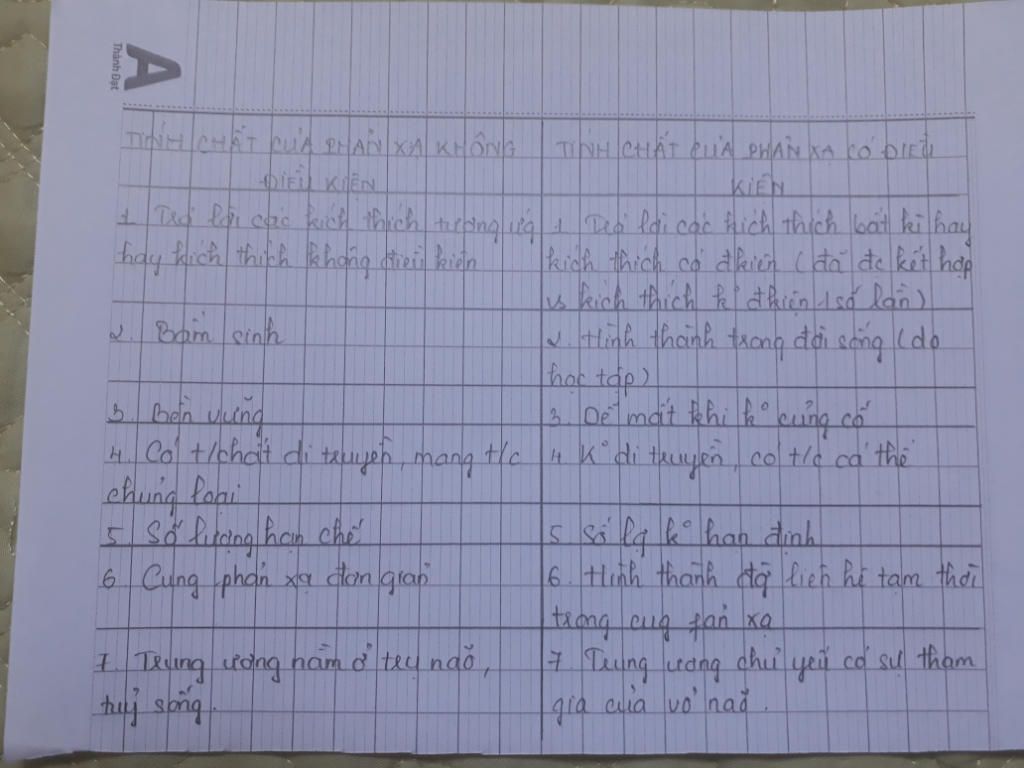 A
Thành Đạt
TÍNH CHẤT CỦA PHẢN XẠ KHÔNG
ĐIỀU KIỆN
1 Trả lời các kích thích tương ứg
hay kích thích không điều kiện
2. Bẩm sinh
3. Bền vững
4. Có t/chất di truyền, mang t/c
chủng loại
5. Số lượng hạn chế
6 Cung phản xạ đơn giản
7. Trung ương nằm ở trụ não,
tuỷ sống.
TÍNH CHẤT CỦA PHẢN XẠ CÓ ĐIỀU
KIỆN
1. Trả lời các kích thích bất kì hay
kích thích có đkiện (đã đc kết hợp
vs kích thích k° đkiện 1 số lần)
2. Hình thành trong đời sống (do
học tập)
3. Dễ mất khi k° củng cố
4 K° di truyền, có t/c cá thể
5 Số lg k° hạn định
6. Hình thành đg liên hệ tạm thời
trong cug fản xạ
7 Trung ương chủ yếu có sự tham
gia của vỏ não.